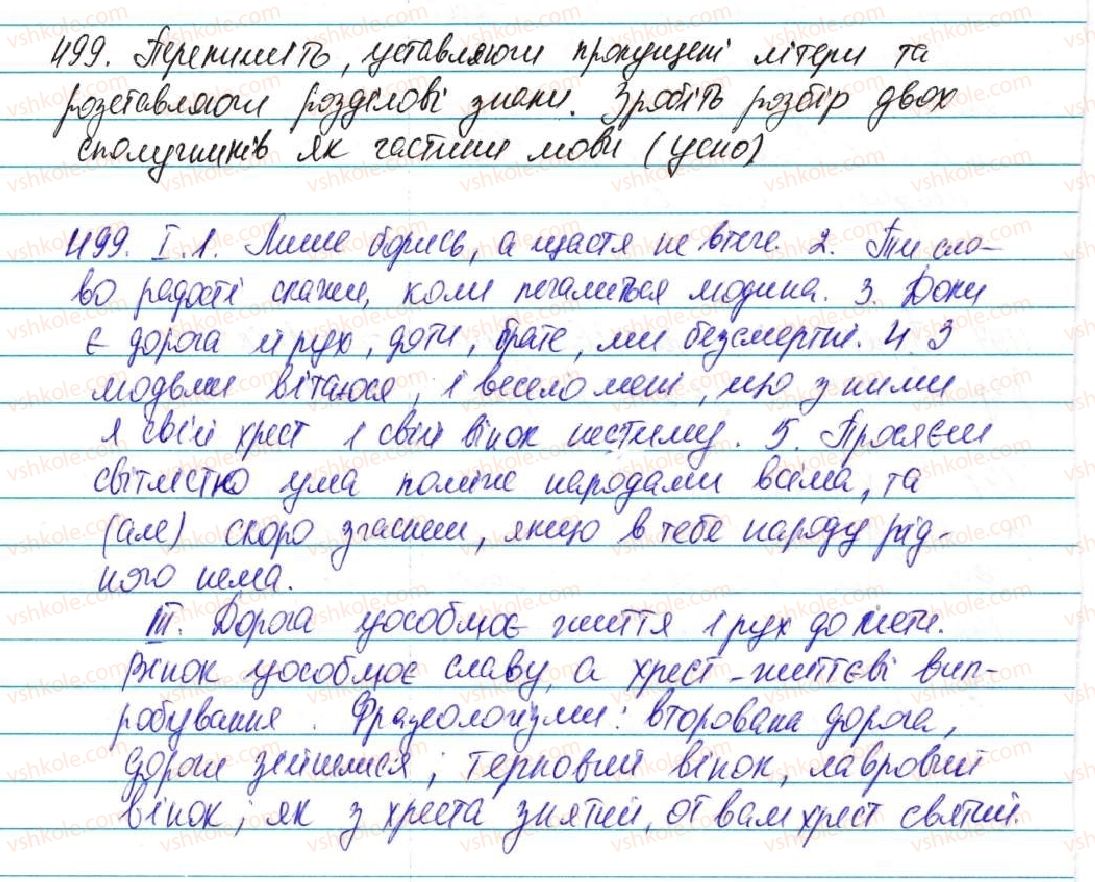 499. Перепишіть, уставляючи пропущені літери та
розставляючи розділові знаки. Зробіть розбір двох
сполучників як частини мови (усно)
499. І.1. Лише борись, а щастя не втече. 2. Ти сло-
во радості скажи, коли печалиться людина. 3. Доки
є дорога й рух, доти, брате, ми безсмертні. 4. З
людьми вітаюся, і весело мені, що з ними
я свій хрест і свій вінок нестиму. 5. Просяєш
світлістю ума поміж народами всіма, та
(але) скоро згаснеш, якщо в тебе народу рід-
ного нема.
ІІІ. Дорога уособлює життя і рух до мети.
Вінок уособлює славу, а хрест - життєві вип-
робування. Фразеологізми: вторована дорога,
дороги зійшлися; терновий вінок, лавровий
вінок; як з хреста знятий, от вам хрест святий.